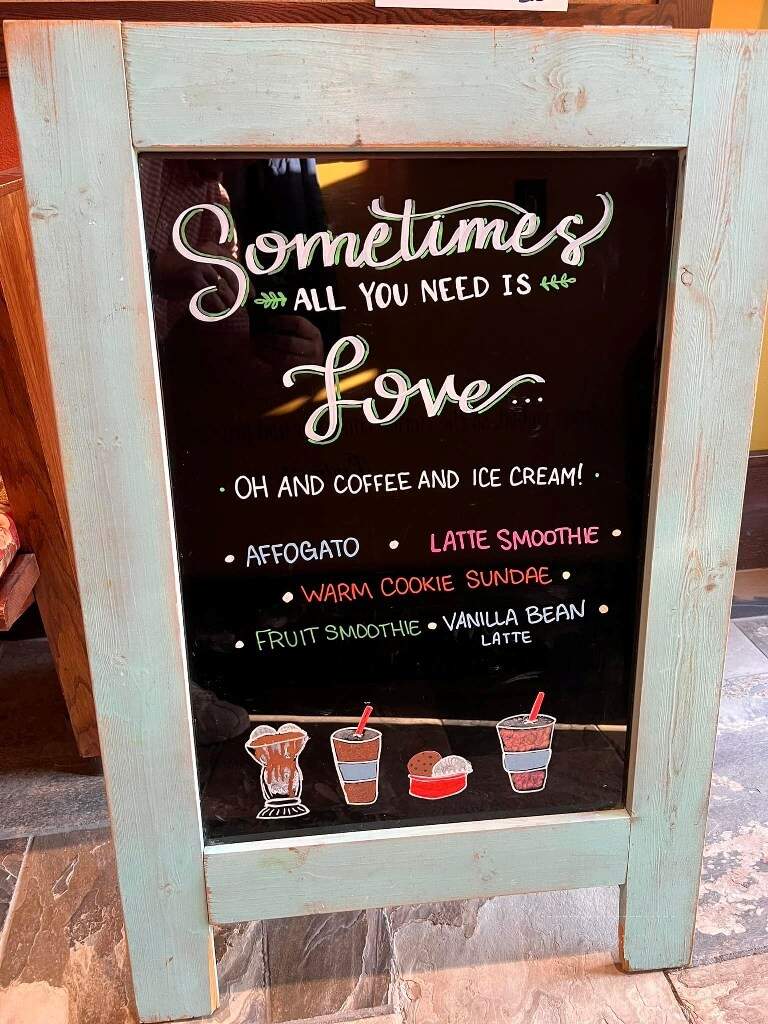 Sometimes
ALL YOU NEED IS
Love...
• OH AND COFFEE AND ICE CREAM! •
• AFFOGATO • LATTE SMOOTHIE •
• WARM COOKIE SUNDAE •
• FRUIT SMOOTHIE • VANILLA BEAN •
LATTE